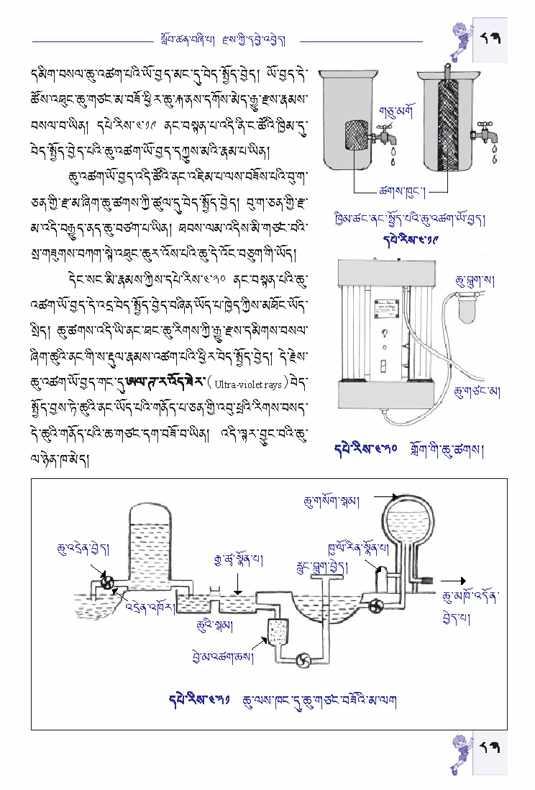 སློབ་ཚན་བཞི་པ། རྫས་ཀྱི་དབྱེ་འབྱེད།
༨༡
དམིག་བསལ་ཆུ་འཚག་པའི་ཡོ་བྱད་མང་དུ་བེད་སྤྱོད་བྱེད། ཡོ་བྱད་དེ་
ཚོས་འཐུང་ཆུ་གཙང་མ་བཟོ་ཕྱིར་ཆུ་ནས་དགོས་མེད་རྒྱུ་རྫས་རྣམས་
བསལ་བ་ཡིན། དཔེ་རིས་༤་༡༩ ནང་བསྟན་པ་འདི་ནི་ང་ཚོའི་ཁྱིམ་དུ་
བེད་སྤྱོད་བྱེད་པའི་ཆུ་འཚག་ཡོ་བྱད་དཀྱུས་མའི་རྣམ་པ་ཡིན།
ཆུ་འཚག་ཡོ་བྱད་འདི་ཚོའི་ནང་འཇིམ་པ་ལས་བཟོས་པའི་བུག་
ཅན་གྱི་རྫ་མ་ཞིག་ཆུ་ཚགས་ཀྱི་ཚུལ་དུ་བེད་སྤྱོད་བྱེད། བུག་ཅན་གྱི་རྫ་
མ་འདི་བརྒྱུད་ནད་ཆུ་བཙག་པ་ཡིན། ཐབས་ལམ་འདིས་མི་གཙང་བའི་
སྲ་གཟུགས་བཀག་སྟེ་འཐུང་ཆུར་འོས་པའི་ཆུ་དེ་འོང་བཅུག་གི་ཡོད།
དེང་སང་མི་རྣམས་ཀྱིས་དཔེ་རིས་༤་༢༠ ནང་བསྟན་པའི་ཆུ་
འཚག་ཡོ་བྱད་དེ་འདྲ་བེད་སྤྱོད་བྱེད་བཞིན་ཡོད་པ་ཁྱེད་ཀྱིས་མཐོང་ཡོད་
སྲིད། ཆུ་ཚགས་འདི་ཡི་ནང་ཟང་ཆུ་རིགས་ཀྱི་རྒྱུ་རྫས་དམིགས་བསལ་
ཞིག་ཆུའི་ནང་གི་ས་རྡུལ་རྣམས་འཚག་པའི་ཕྱིར་བེད་སྤྱོད་བྱེད། དེ་རྗེས་
ཆུ་འཚག་ཡོ་བྱད་གང་དུ་ཨལ་ཊ་ར་འོད་ཟེར་( Ultra-violet rays )བེད་
སྤྱོད་བྱས་ཏེ་ཆུའི་ནང་ཡོད་པའི་གནོད་པ་ཅན་གྱི་འབུ་ཕྲའི་རིགས་བསད་
དེ་ཆུའི་གནོད་པའི་ཆ་གཙང་དག་བཟོ་བ་ཡིན། འདི་ལྟར་བྱུང་བའི་ཆུ་
ལ་ཉེན་ཁ་མེད།
གཅུ་མགོ
ཚགས་ཁུང་།
ཁྱིམ་ཚང་ནང་སྤྱོད་པའི་ཆུ་འཚག་ཡོ་བྱད།
དཔེ་རིས་༤་༡༩
ཆུ་བླུག་ས།
ཆུ་གཙང་མ།
དཔེ་རིས་༤་༢༠ གློག་གི་ཆུ་ཚགས།
ཆུ་གསོག་སྒམ།
ཆུ་འདྲེན་བྱེད།
རྒྱ་ཚྭ་སྣོན་པ།
ཁུ་ལོ་རིན་སྣོན་པ།
རླུང་བླུག་བྱེད།
འདྲེན་འཁོར།
ཆུའི་སྒམ།
ཆུ་མཁོ་འདོན་
བྱེད་པ།
བྱེ་མ་འཚག་ཆས།
དཔེ་རིས་༤་༢༡ ཆུ་ལས་ཁང་དུ་ཆུ་གཙང་བཟོའི་མ་ལག
༨༡